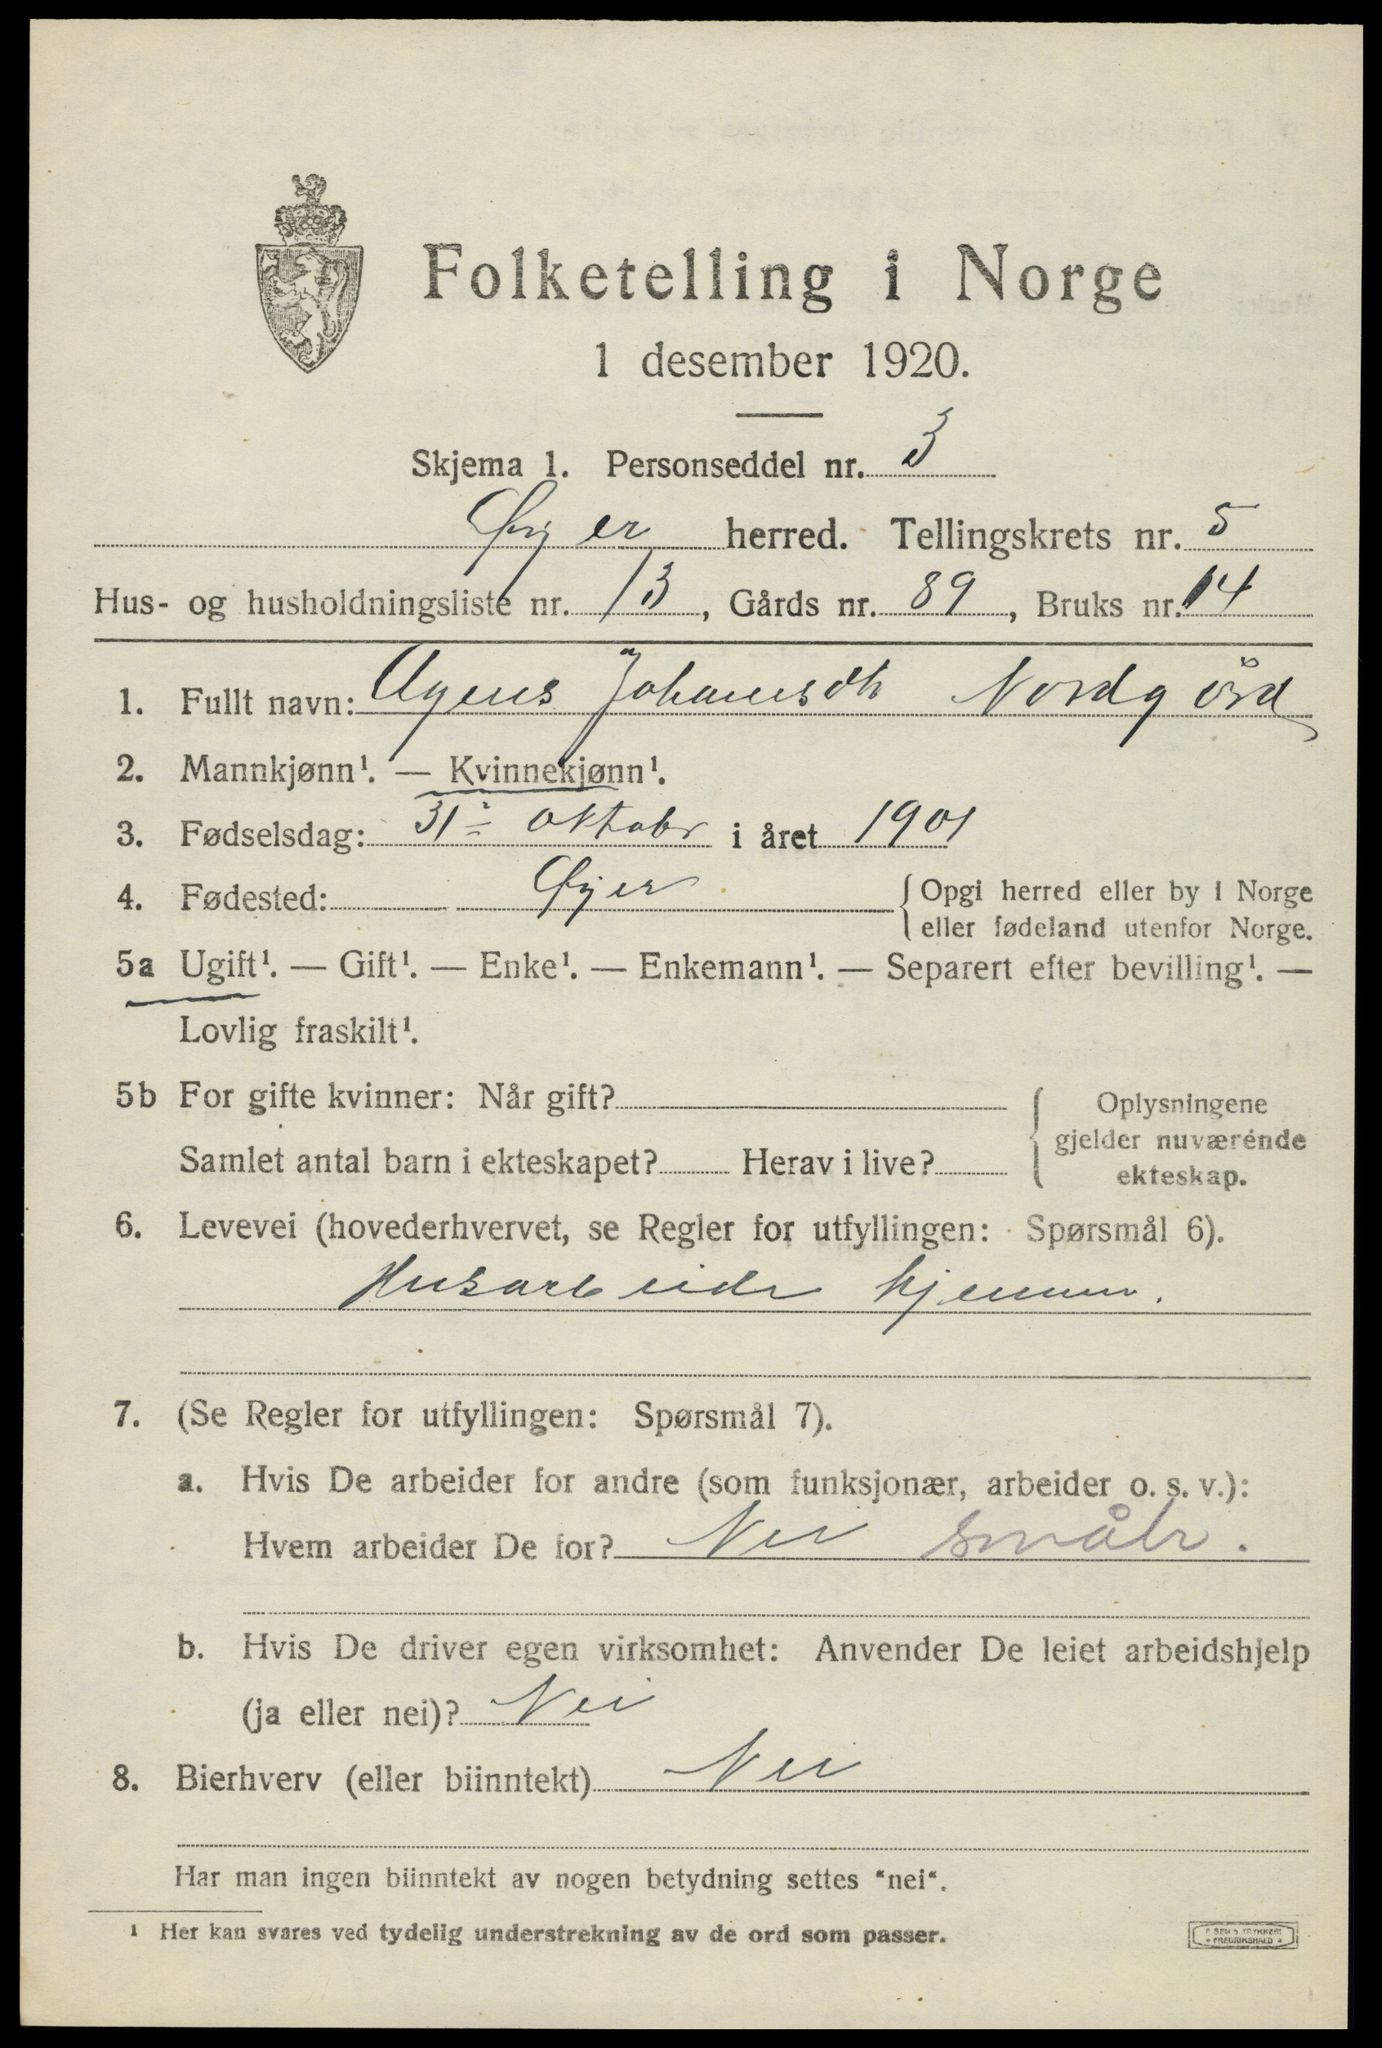 Folketelling i Norge
1 desember 1920.
Skjema 1. Personseddel nr. 3
Øyer herred. Tellingskrets nr. 5
Hus- og husholdningsliste nr. 13, Gårds nr. 89, Bruks nr. 14
1. Fullt navn: Agens Johansdtr Nordgård
2. Mannkjønn¹. — Kvinnekjønn¹.
3. Fødselsdag: 31 oktobr i året 1901
4. Fødested: Øyer {Opgi herred eller by i Norge
eller fødeland utenfor Norge.
5a Ugift¹. — Gift¹. — Enke¹. — Enkemann¹. — Separert efter bevilling¹. —
Lovlig fraskilt¹.
5b For gifte kvinner: Når gift? { Oplysningene
gjelder nuværende
Samlet antal barn i ekteskapet? Herav i live?
ekteskap.
6. Levevei (hovederhvervet, se Regler for utfyllingen: Spørsmål 6).
Husarbeide hjemme.
7. (Se Regler for utfyllingen: Spørsmål 7).
a. Hvis De arbeider for andre (som funksjonær, arbeider o. s. v.):
Hvem arbeider De for? Nei småbr.
b. Hvis De driver egen virksomhet: Anvender De leiet arbeidshjelp
(ja eller nei)? Nei
8. Bierhverv (eller biinntekt) Nei
Har man ingen biinntekt av nogen betydning settes "nei".
¹ Her kan svares ved tydelig understrekning av de ord som passer.
FREDRIKSHALD